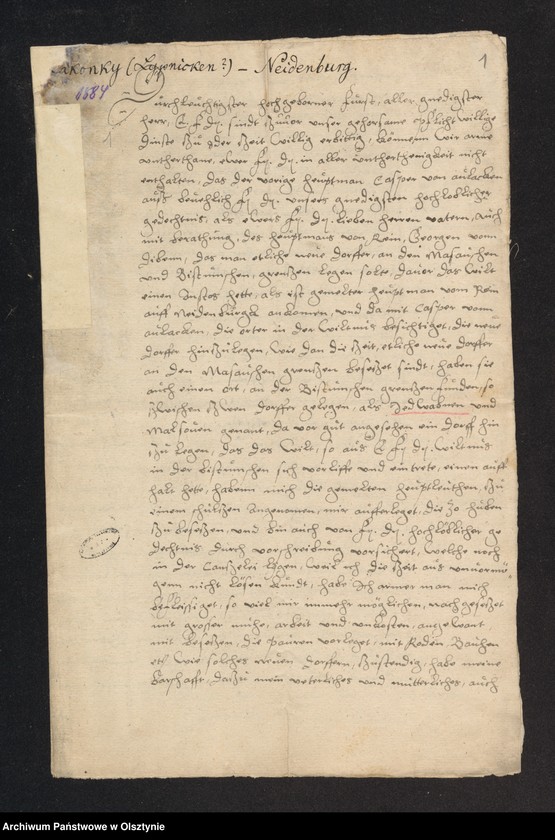 akonky (Lypnicken?) – Neidenburg.
1
1684
Durchleuchtigster hochgeborner furst, aller gnedigster
herr, E f dh. sindt unser gehorsame pflichtwillige
dinste zu der Zeit willig erbittig, können wir arme
unterthane, ewer fh. dh. in aller unterthenigkeit nicht
enthalten, das der vorige heuptman Casper von aulacken
auß fh. dh. unsers gnedigsten hochloblicher
gedechtnis, als ewers fh. dh. lieben herren vatern, auch
mit berathung, des heuptmans von Rein, Georgen vonn
diben, das man etliche neue dorffer, an den Masauschen
und Bistumschen, grenßen legen solte, das Wilt
einen hette, als ist gemelter heuptman vom Rein
auff Neidenburgk ankomen, und da mit Casper vom
aulacken, die orter in der Wiltnus besichtiget, die neue
dorffer hinzulegen, Wie dan die Zeit, etliche neue dorffer
an den Masauschen grenßen besetzet sindt, haben sie
auch einen ort, an der Bistumschen grenßen funden, so
zwischen zween dorffer gelegen, als Jedwabnen und
Malsouen genant, da vor gut angesehen ein dorff hin
zu legen, das das Wilt, so aus E fh dh. Wiltnus
in der bistumschen sich vorliffe und eintrete, einen auff
halt hette, habenn mich die gemelten heuptleuthen, zu
einem schultzen angenomen, mir aufferleget, die Zo huben
zu besetzen, und bin auch von fh. dh. hochlöblicher ge
dechtnis durch vorschreibung vorsichert, welche noch
in der Cantzelei legen, Weil ich die Zeit aus unvormö
genn nicht lösen kundt, habe Ich armer man mich
befleissiget, so viel mir immehr möglichen, nachgesetzet
mit grosser muhe, arbeit und unkosten, angewant
mit besetzen, die pauren vorleget, mit Roden, Bauhen
etc. wie solches neuen dorffern, zustendig, habe meine
barschafft, darzu mein veterliches und mutterliches, auch
Archiwum Państwowe w Olsztynie